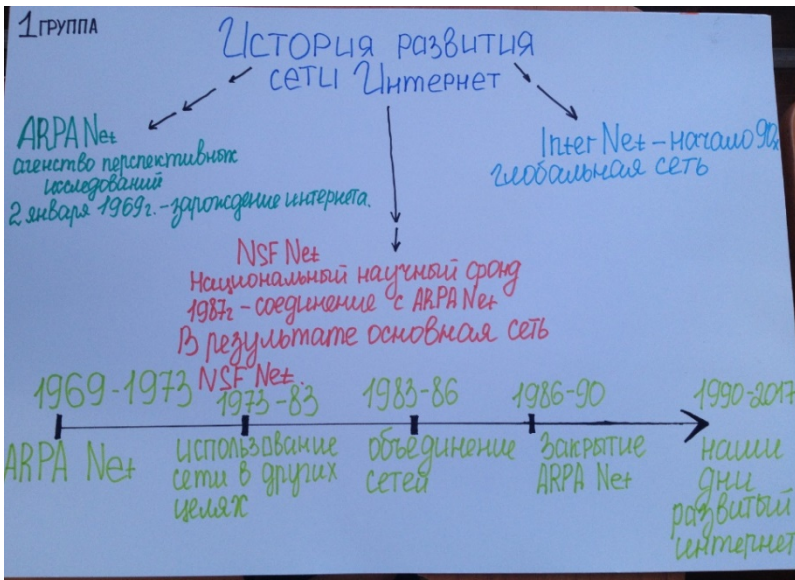 1 ГРУППА
История развития
сети Интернет
ARPA Net
агенство перспективных
исследований
2 января 1969г. – зарождение интернета.
InterNet – начало 90х
глобальная сеть
NSF Net
Национальный научный фонд
1987г – соединение с ARPA Net
В результате основная сеть
NSF Net.
1969-1973
1973-83
1983-86
1986-90
1990-2017
ARPA Net
использование
сети в других
целях
объединение
сетей
Закрытие
ARPA Net
наши
дни
развитый
интернет